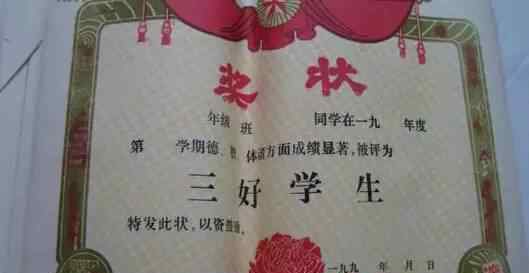 奖状
年级 班 同学在一九 年度
第 学期德、智、体诸方面成绩显著,被评为
三好学生
特发此状,以资
一九九 年 月 日